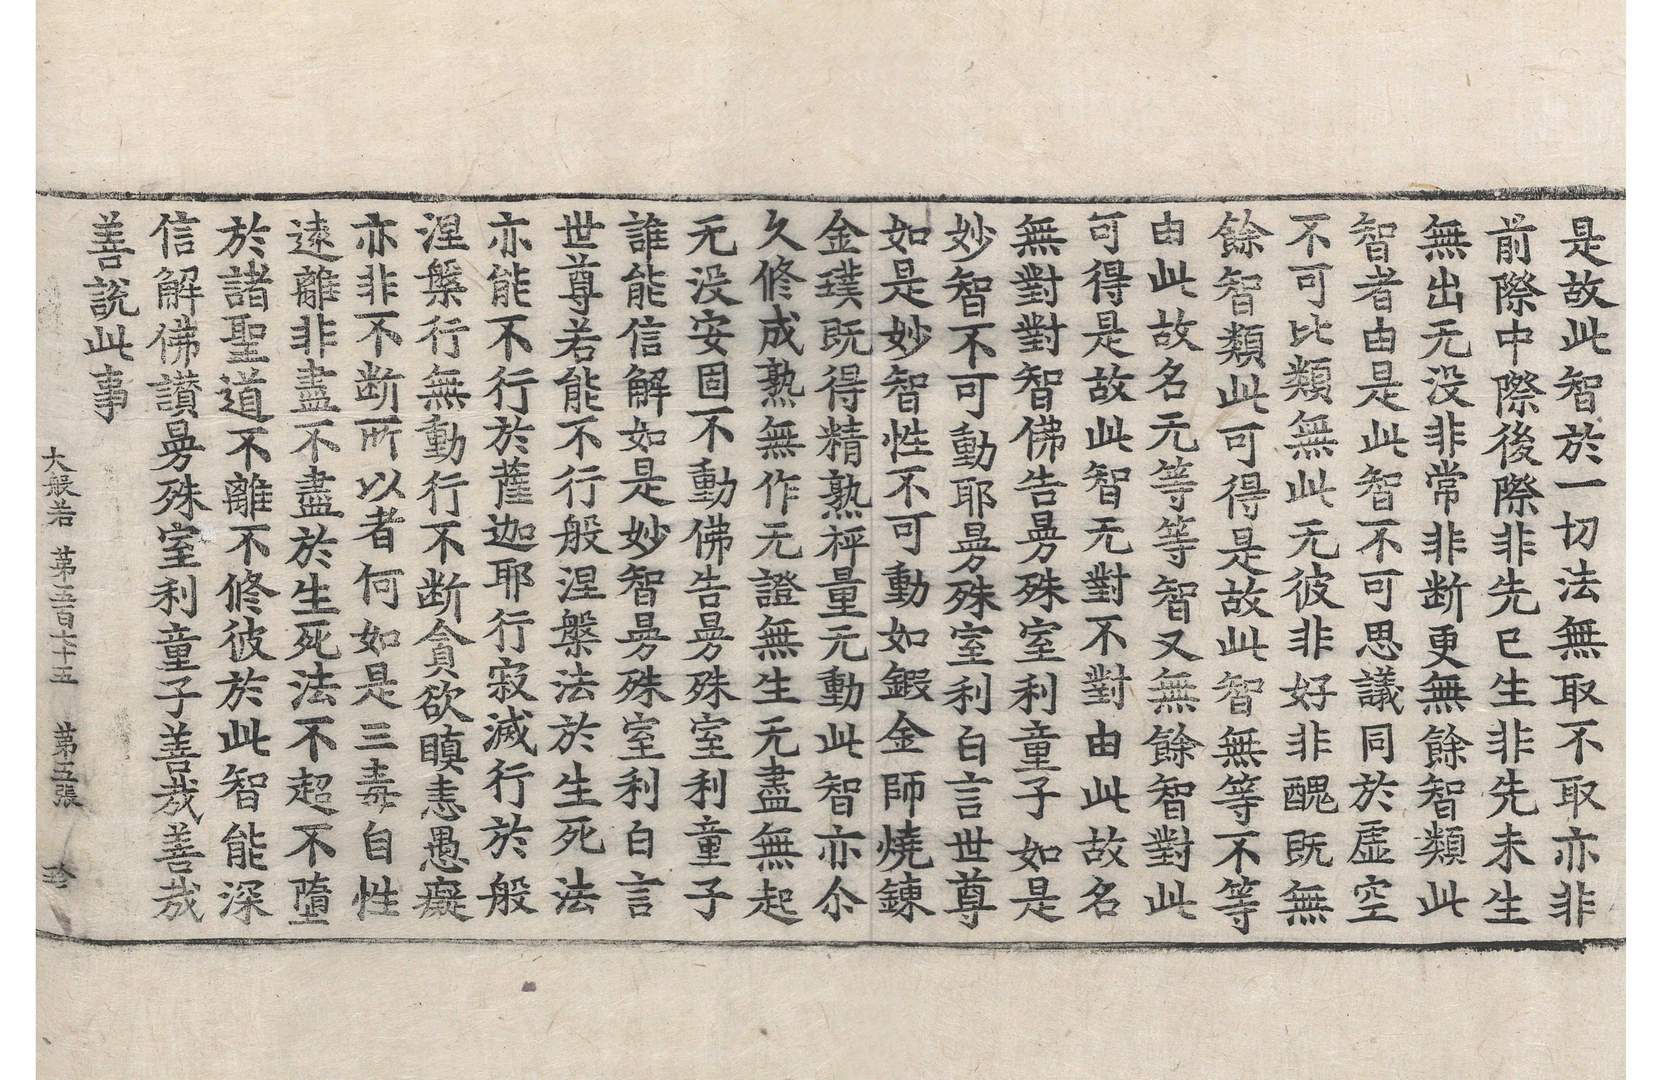 是故此智於一切法無取不取亦非
前際中際後際非先已生非先未生
無出无没非常非断更無餘智類此
智者由是此智不可思議同於虛空
不可比類無此无彼非好非醜既無
餘智類此可得是故此智無等不等
由此故名无等等智又無餘智對此
可得是故此智无對不對由此故名
無對對智佛告曼殊室利童子如是
妙智不可動耶曼殊室利白言世尊
如是妙智性不可動如鍛金師燒鍊
金璞既得精熟秤量无動此智亦尒
久修成熟無作无證無生无盡無起
无没安固不動佛告曼殊室利童子
誰能信解如是妙智曼殊室利白言
世尊若能不行般涅槃法於生死法
亦能不行於薩迦耶行寂滅行於般
涅槃行無動行不断貪欲瞋恚愚癡
亦非不断所以者何如是三毒自性
遠離非盡不盡於生死法不超不墮
於諸聖道不離不修彼於此智能深
信解佛讃曼殊室利童子善哉善哉
善說此事
大般若 第五百七十五 第五張 珎